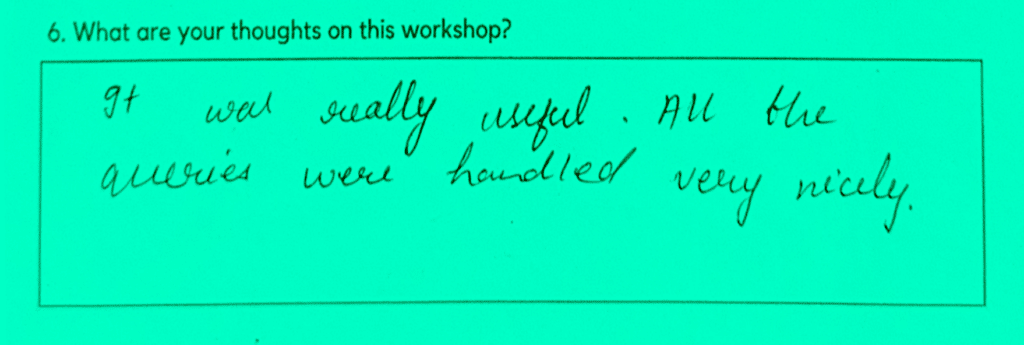 6. What are your thoughts on this workshop?
It was really useful. All the
queries were handled very nicely.